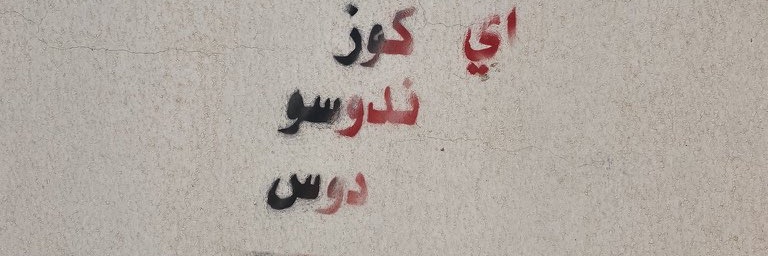 اي كوز
ندوسو
دوس